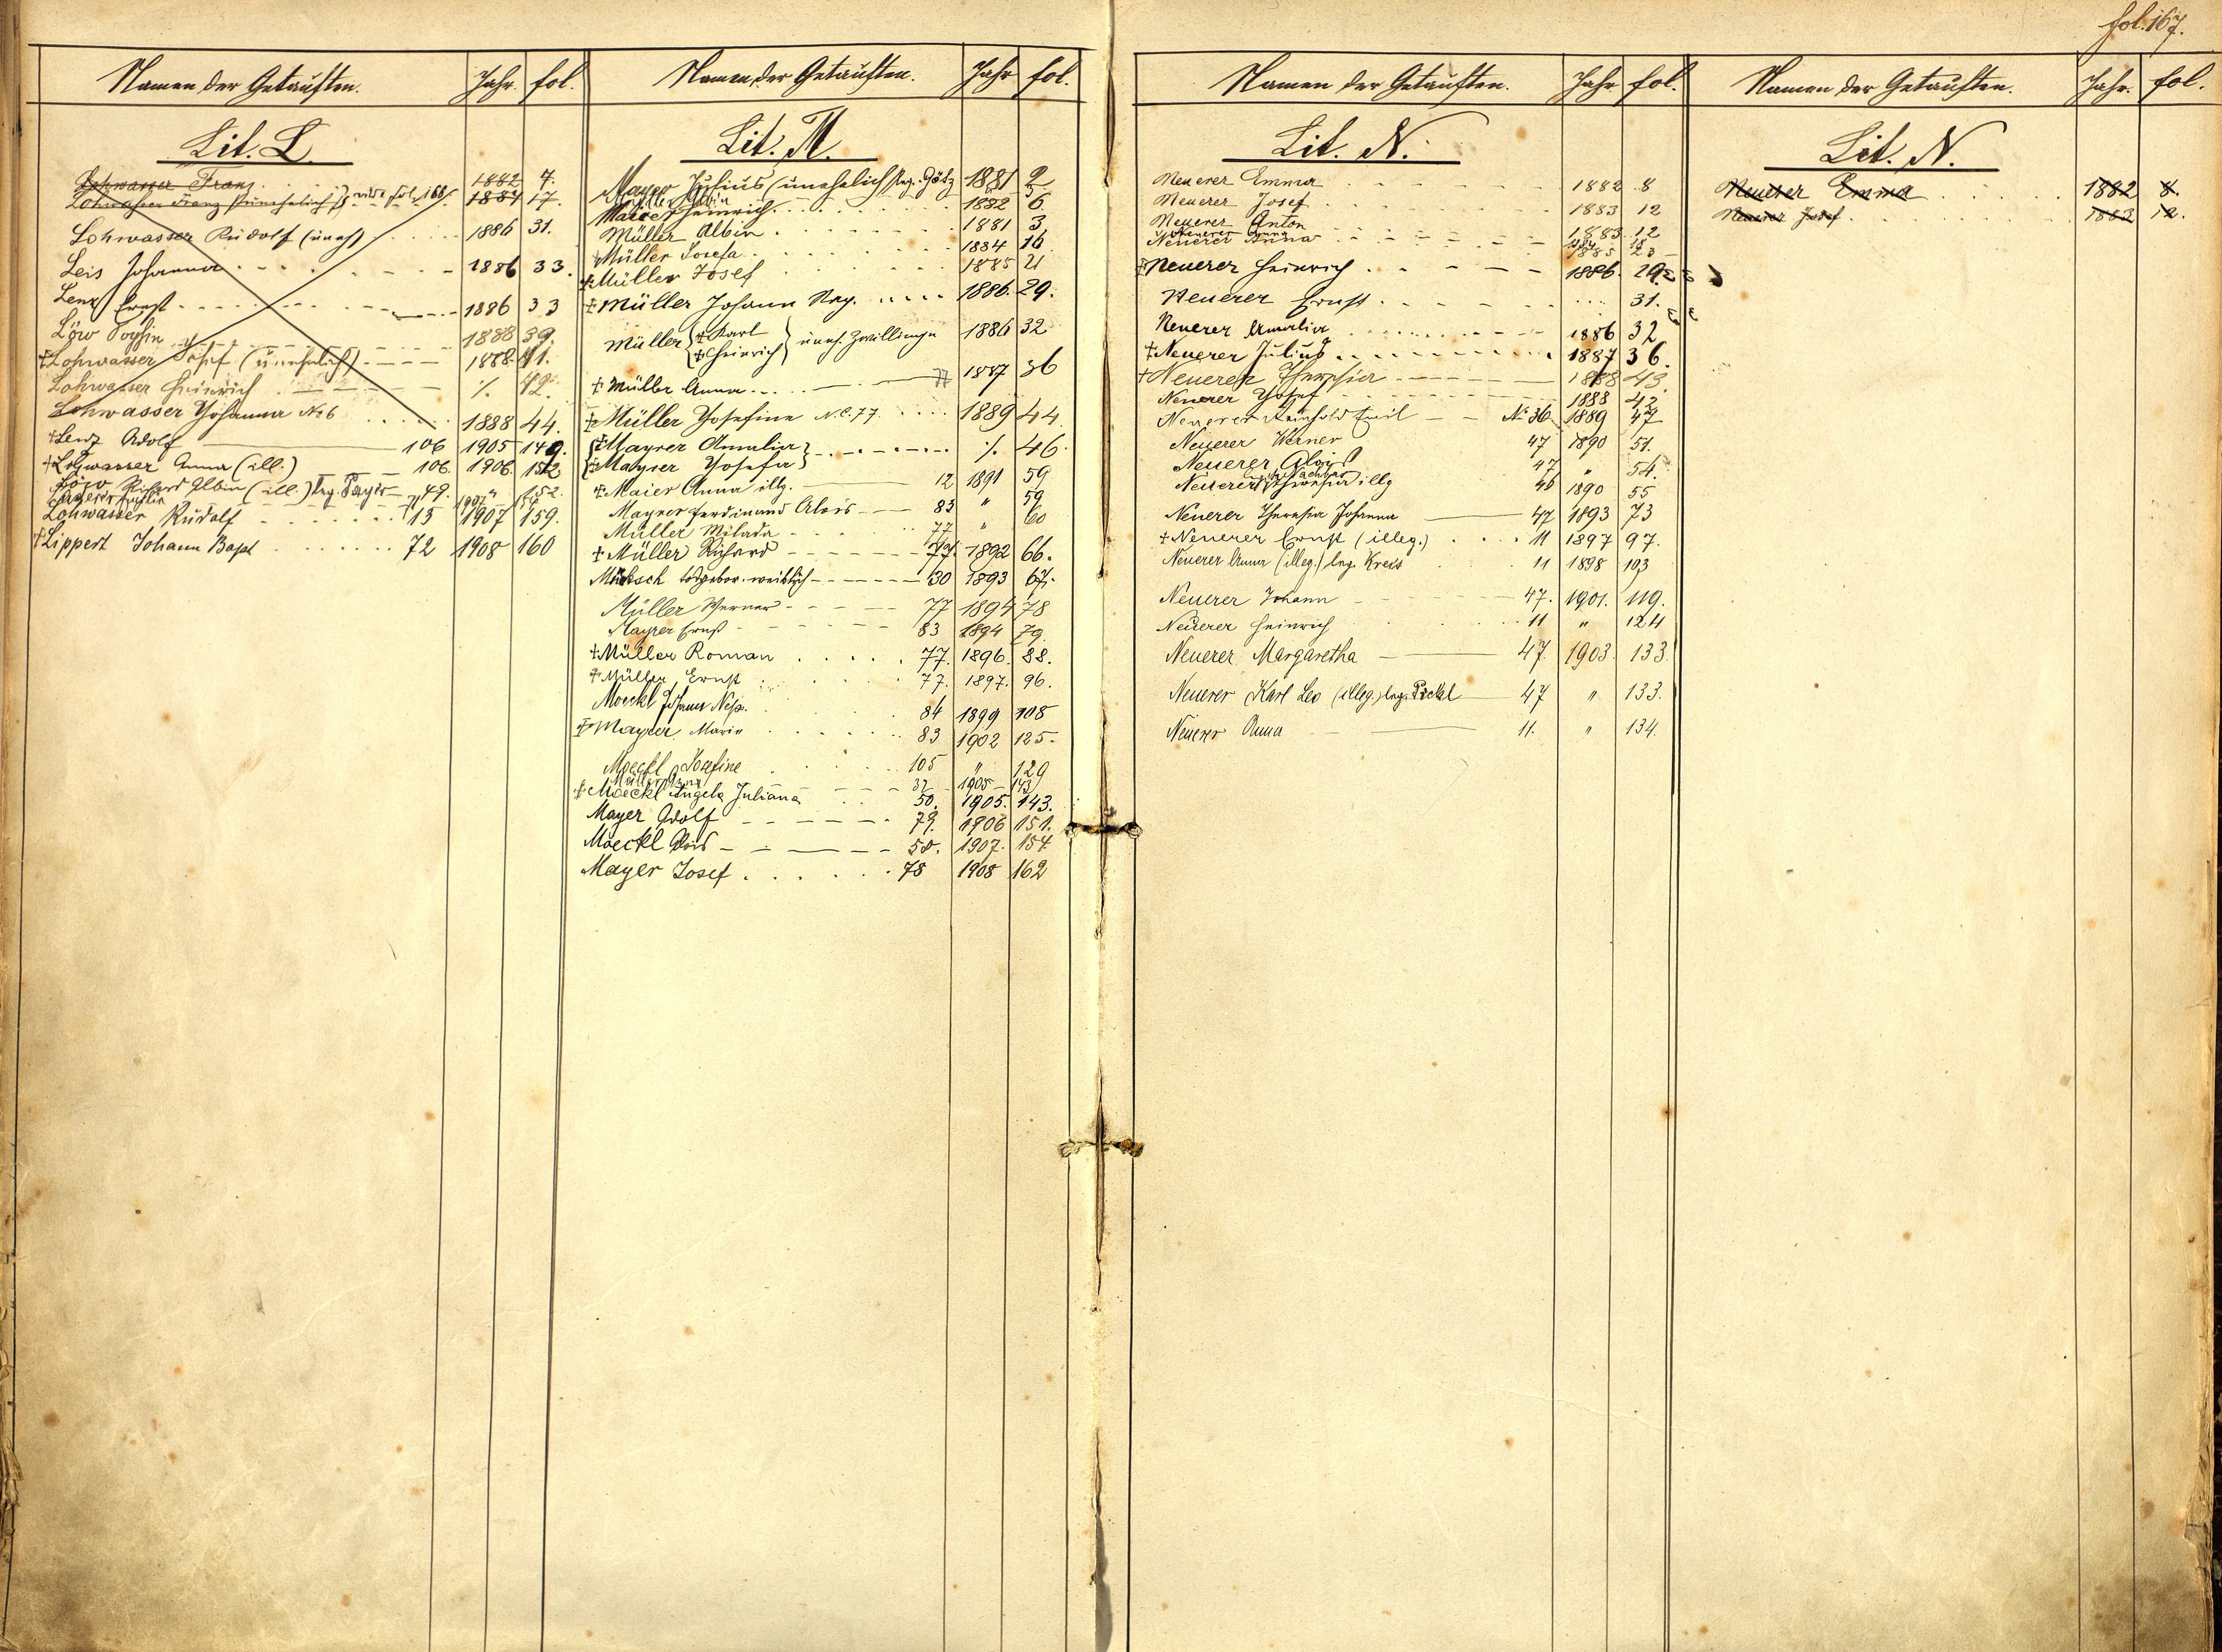 fol. 167.
Namen der Getauften. Jahr. fol.
Lit. L.
Lohwasser Franz 1882 4.
Lohwasser Franz (unehelich) vide fol. 166 1884 17.
Lohwasser Rudolf (uneh) 1886 31.
Leis Johanna 1886 33.
Lenz Ernst 1886 33
Löw 1888 39.
†Lohwasser Josef (unehelich) 1888 41.
Lohwasser Heinrich ·/. 42.
Lohwasser Johanna No 6 1888 44.
†Lenz Adolf 106 1905 149.
†Lohwasser Anna (ill.) 106. 1906. 152
Löw Richard Albin (ill.) leg. Payer 49. " 152.
71 1907
Lohwasser Rudolf 15 1907 159.
†Lippert Johann Bapt 72 1908 160
Namen der Getauften. Jahr fol.
Lit. M.
Mayer Julius (unehelich) leg. Götz 1881 2
Müller Albin 5
Maier Heinrich 1882 6.
Müller Albin 1881 3
Müller Josefa 1884 16
‡Müller Josef 1885 21
‡Müller Johann Nep. 1886. 29.
Müller {‡Karl ‡Heinrich} uneh. Zwillinge 1886 32
‡Müller Anna 77 1887 36
‡Müller Josefine N.C. 77 1889 44
{‡Mayrer Amalia} ·/. 46.
{‡Mayrer Josefa}
‡Maier Anna illg. 12 1891 59
Mayrer Ferdinand Alois 83 " 59
Müller Milada 77 " 60
‡Müller Richard 77. 1892 66.
todgebor. weiblich 30 1893 67.
Müller Werner 77 1894 78
Mayrer Ernst 83 1894 79.
‡Müller Roman 77. 1896. 88.
‡Müller Ernst 77. 1897. 96.
Moeckl Johann Nep. 84 1899 108
‡Mayrer Marie 83 1902 125.
Moeckl Josefine 105 " 129
Müller 32 1905 143
‡Moeckl Angela Juliana 50. 1905. 143.
Mayer Adolf 79. 1906 151.
Moeckl Alois 50. 1907. 154
Mayer Josef 78 1908 162
Namen der Getauften. Jahr fol.
Lit. N.
Neuerer Emma 1882 8
Neuerer Josef 1883 12
Neuerer Anton 1883. 12
Neuerer Anna 1884 18
Neuerer Anna 1885 23
‡Neuerer Heinrich 1886. 29
Neuerer Ernst 31.
Neuerer Amalia 1886 32
‡Neuerer Julius 1887 36.
†Neuerer Theresia 1888 43.
Neuerer Josef 1888 42
Neuerer Reinhold Emil No 36 1889 47
Neuerer Werner 47 1890 51.
Neuerer Alois 47 " 54.
Neuerer Theresia illg 46 1890 55
Neuerer Theresia Johanna 47 1893 73
†Neuerer Ernst (illeg.) 11 1897 97.
Neuerer Anna (illeg.) leg. Kreis 11 1898 103
Neuerer Johann 47. 1901. 119.
Neuerer Heinrich 11 " 124
Neuerer Margaretha 47. 1903. 133.
Neuerer Karl Leo (illeg.) leg. Pickl 47 " 133.
Neuerer Anna 11. " 134.
Namen der Getauften. Jahr. fol.
Lit. N.
Neuerer Emma 1882 8.
Neuerer Josef 1883 12.